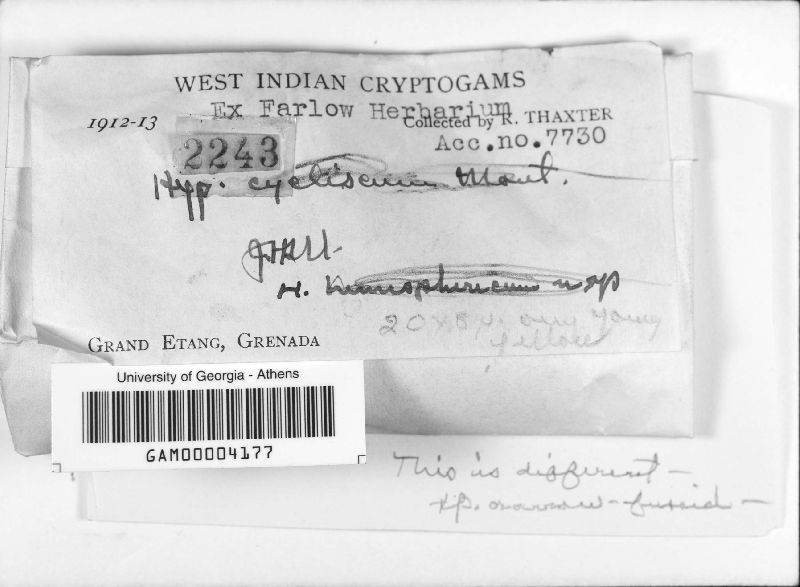 WEST INDIAN CRYPTOGAMS
Ex Farlow Herbarium
1912-13 Collected by R. THAXTER
Acc.no.7730
2243
Hyp. cycliscum Mont.
JHM
H. hemisphericum n sp
20 x 8 µ. only young
yellow
GRAND ETANG, GRENADA
University of Georgia - Athens
GAM00004177
This is different -
sp. narrow-fusoid -